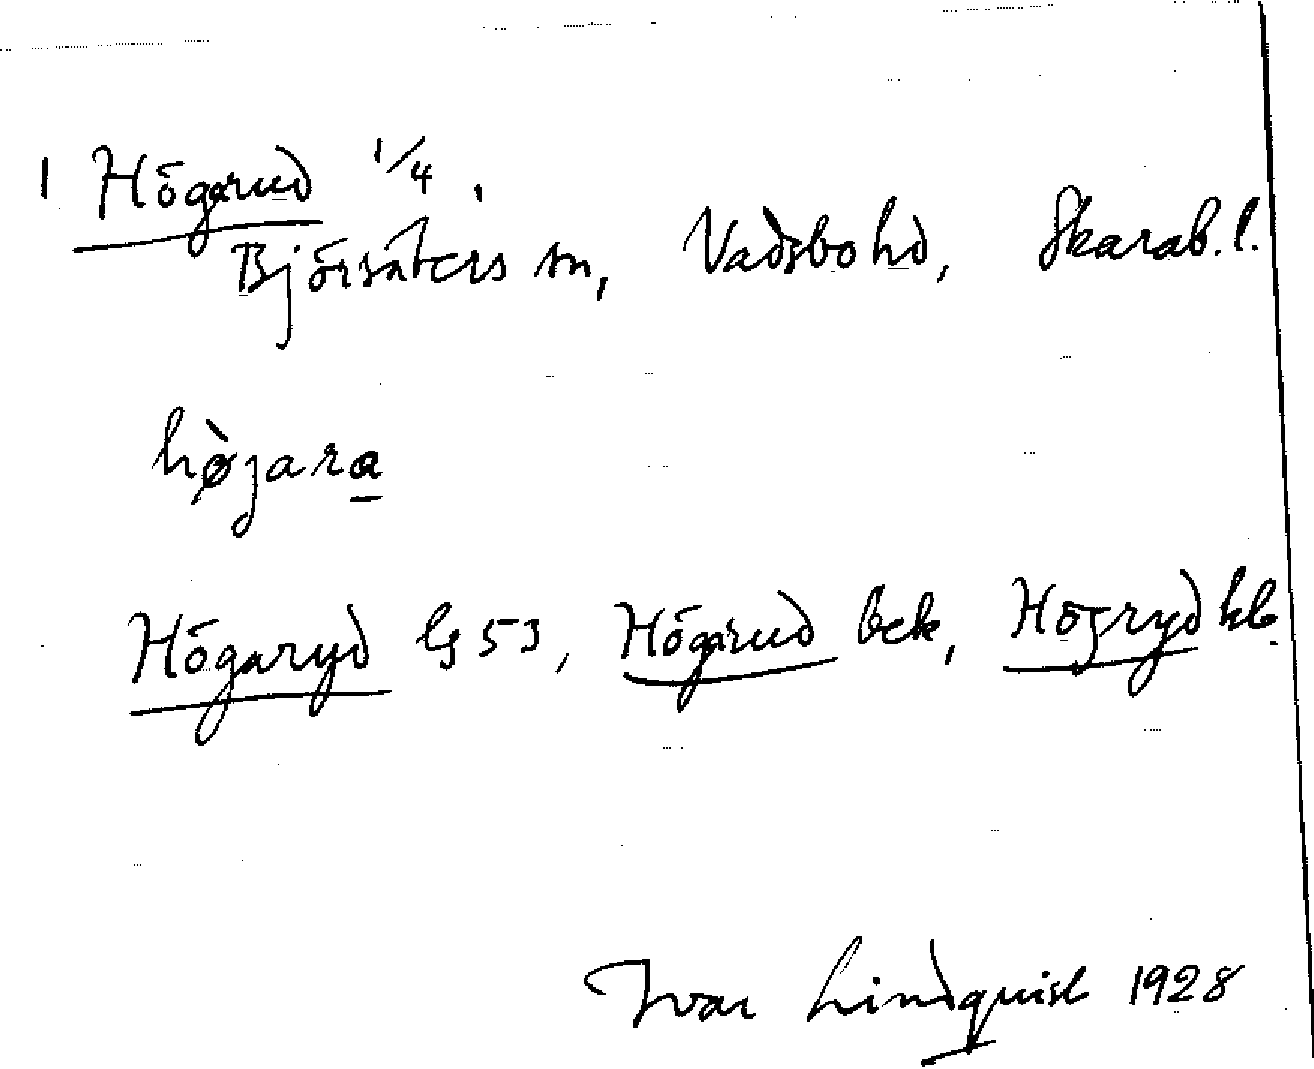 1 Högarud 1/4.
Björsäters sn, Vadsbo hd, Skarab. l.
hø̀jara
Högaryd lg 53, Högarud bek, Högryd kb
Ivar Lindquist 1928